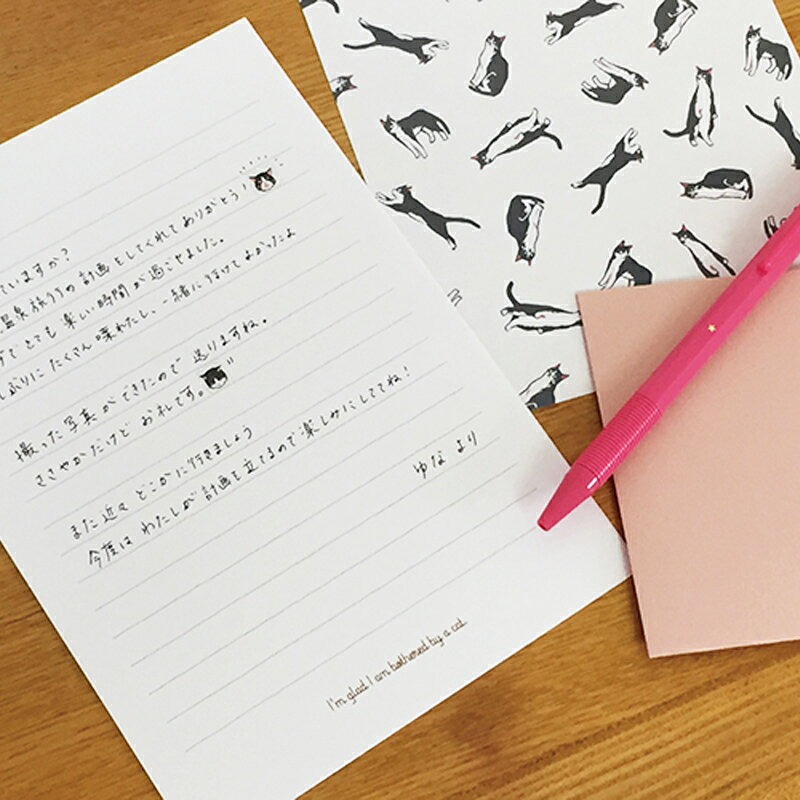 ていますか?
温泉旅行の計画をしてくれてありがとう!
とても楽しい時間が過ごせました。
ぶりにたくさん喋れたし、一緒に行けてよかったよ
撮った写真ができたので 送りますね。
ささやかだけど お礼です。
また近々 どこかに行きましょう
今度は わたしが 計画を立てるので楽しみにしててね!
ゆなより
I'm glad I am bothered by a cat.